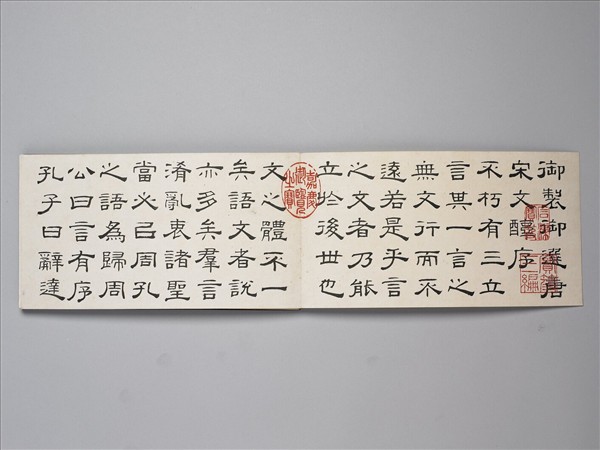 御製御選唐
宋文醇序
不朽有三立
言其一言之
無文行而不
遠若是乎言
之文者乃能
立於後世也
嘉慶御覽之寶
文之體不一
矣語文者說
亦多矣羣言
淆亂衷諸聖
當必㠯周孔
之語為歸周
公曰言有序
孔子曰辭達